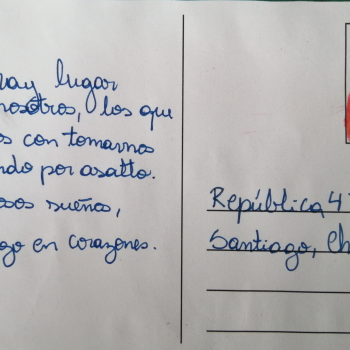 hay lugar
nosotros, los que
os con tomarnos
ndo por asalto.
sos sueños,
go en corazones.
República 47
Santiago, Ch